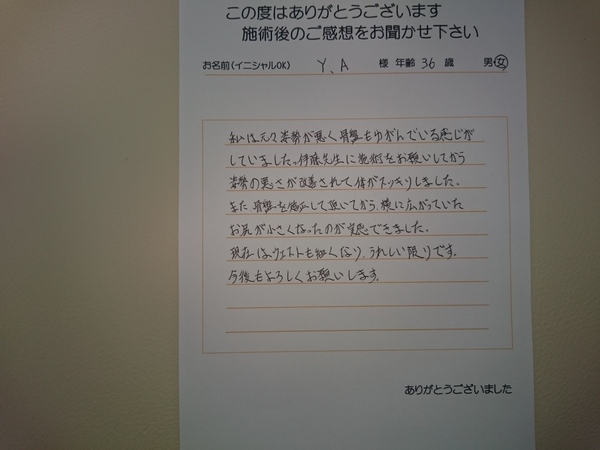 この度はありがとうございます
施術後のご感想をお聞かせ下さい
お名前(イニシャルOK) Y、A 様 年齢 36 歳 男・女
私は元々姿勢が悪く骨盤もゆがんでいる感じが
していました。伊藤先生に施術をお願いしてから
姿勢の悪さが改善されて、体がスッキリしました。
また骨盤を矯正して頂いてから、横に広がっていた
お尻が小さくなったのが実感できました。
現在はウエストも細くなり、うれしい限りです。
今後もよろしくお願いします。
ありがとうございました